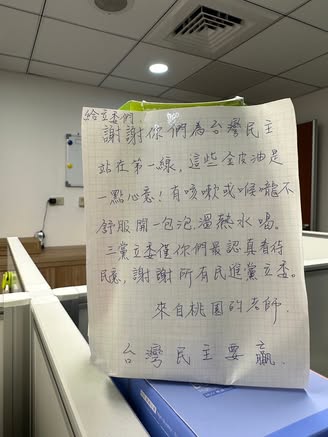 給立委們
謝謝你們為台灣民主
站在第一線,這些金皮油是
一點心意!有咳嗽或喉嚨不
舒服開一包泡溫熱水喝。
三黨立委僅你們最認真看待
民意,謝謝所有民進黨立委。
來自桃園的老師.
台灣民主要贏.